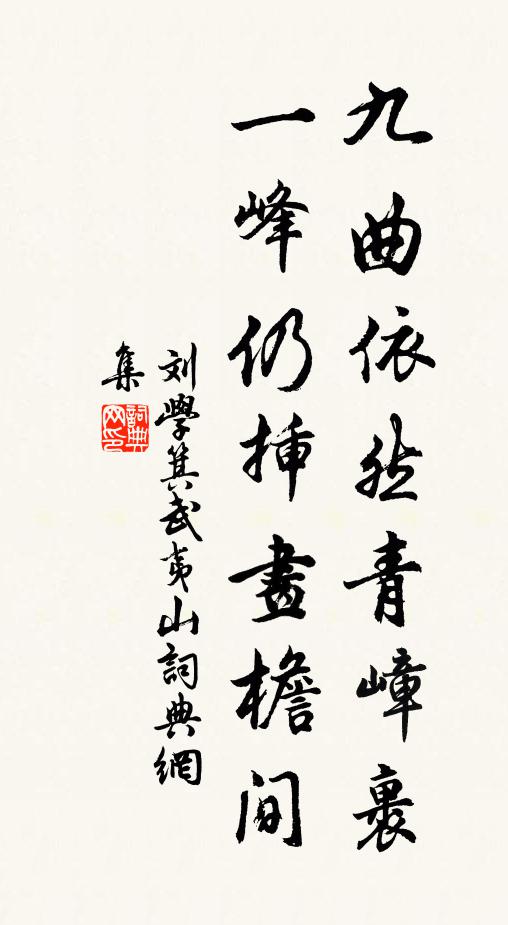 九曲依然青嶂裏
一峰仍插畫檐間
刘學箕武夷山詞典網
集
詞典
网印